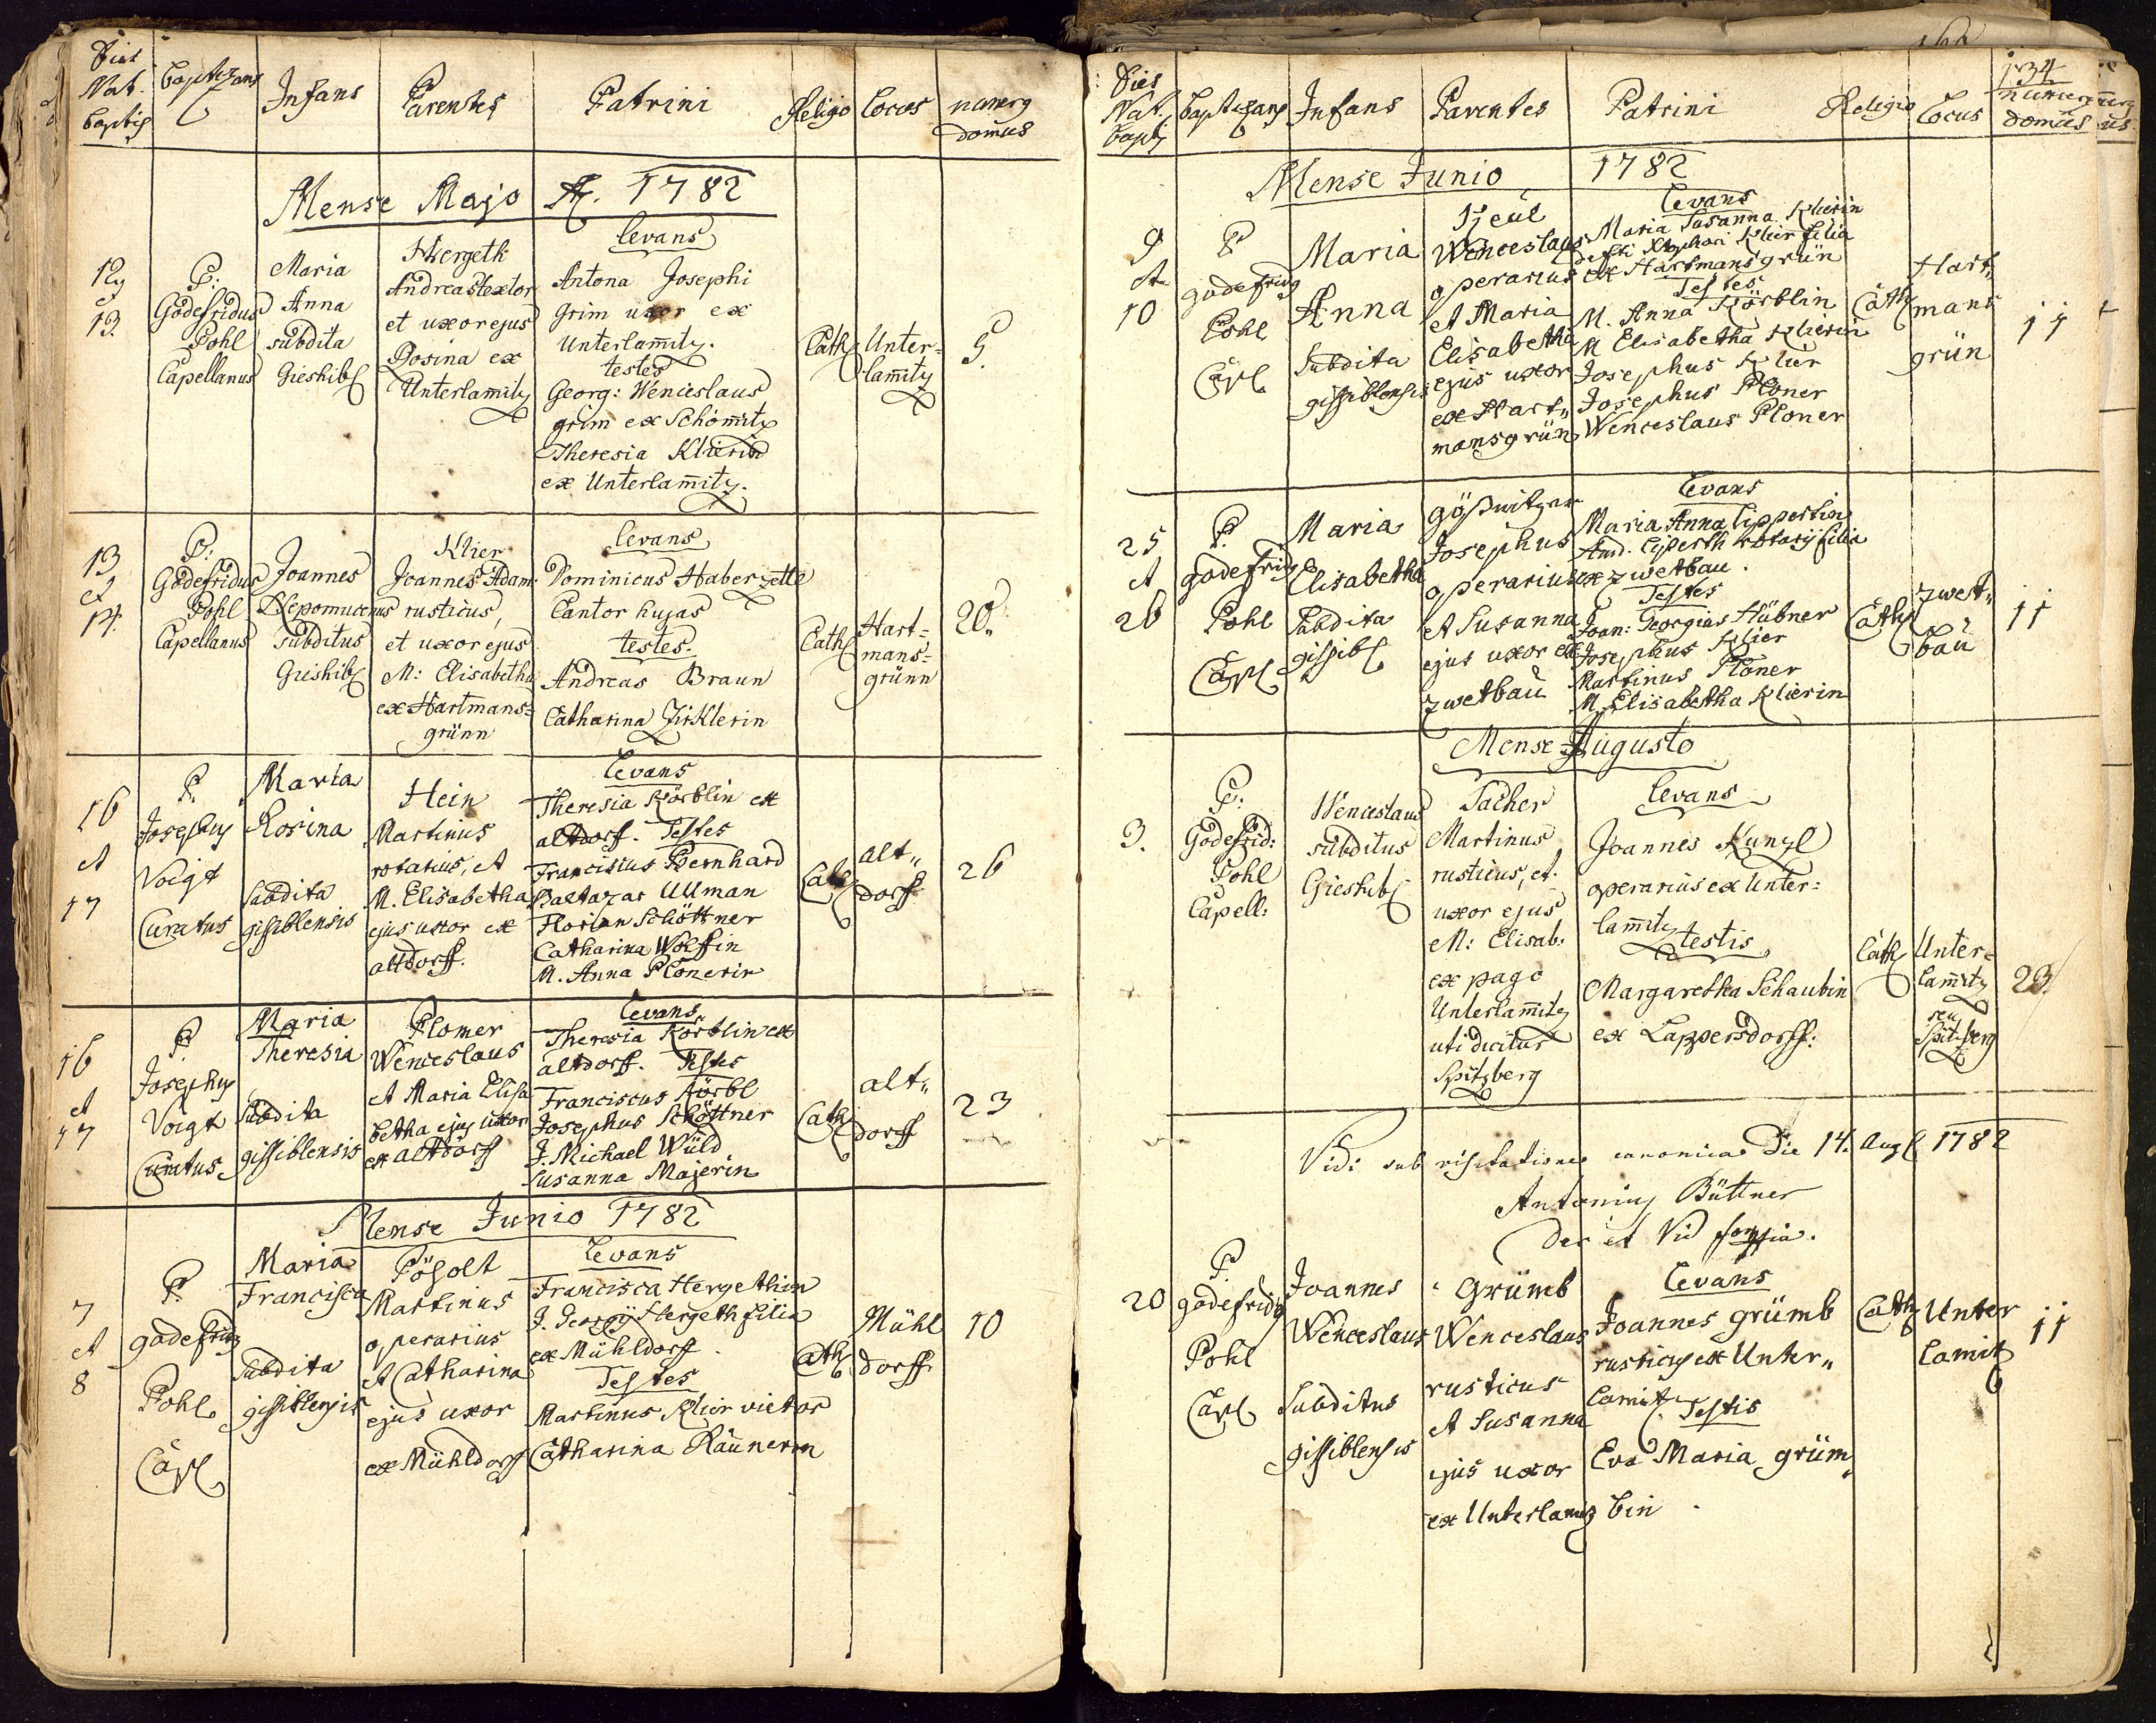 Dies
Nat.
baptis
baptizans
Infans
Parentes
Patrini
Religio
Locus
numerg
domus
Mense Majo A. 1782
12
et
13.
P:
Godefridus
Pohl
Capellanus
Maria
Anna
subdita
Gieshibl
Hergeth
Andreas textor
et uxor ejus
Rosina ex
Unterlamitz
Levans
Antona Josephi
Grim uxor ex
Unterlam̄itz.
testes
Georg: Wenceslaus
grim ex Schöm̄itz
Theresia Klierin
ex Unterlam̄itz.
Cath
Unter=
lam̄itz
5.
13
et
14.
P:
Godefridus
Pohl
Capellanus
Joannes
Nepomucenus
subditus
Gieshibl
Klier
Joannes Adam:
rusticus,
et uxor ejus
M: Elisabetha
ex Hartmans=
grünn
Levans
Dominicus Haberzettl
Cantor hujas
testes.
Andreas Braun
Catharina Zirklerin
Cath
Hart=
mans=
grünn
20.
16
et
17
P.
Josephus
Voigt
Curatus
Maria
Rosina
Subdita
gissiblensis
Hein
Martinus
rotarius, et
M. Elisabetha
ejus uxor ex
altdorff.
Levans
Theresia Körblin ex
altdorf. Testes
Franciscus Bernhard
Baltazar Ullman
Florian Schöttner
Catharina Wolfin
M. Anna Plonerin
Cath
alt"
dorff
26
16
et
17
P.
Josephus
Voigt
Curatus
Maria
Theresia
Subdita
gissiblensis
Plomer
Wenceslaus
et Maria Elisa
betha ejus uxor
ex altdorff
Levans
Theresia Körblin ex
altdorff. Testes
Franciscus Körbl
Josephus Schöttner
J. Michael Wüld
Susanna Majerin
Cath
alt"
dorff
23
Mense Junio 1782
7
et
8
P.
godefridg
Pohl
Capl
Maria
Francisca
Subdita
gissiblensis
Pößolt
Martinus
operarius
et Catharina
ejus uxor
ex Mühldorff
Levans
Francisca Hergethin
J. Georgij Hergeth filia
ex Mühldorff.
Testes
Martinus Klier vietor
Catharina Raunerin
Cath
Mühl
dorff
10
134
Dies
Nat.
bapt
baptizans
Infans
Parentes
Patrini
Religio
Locus
numerg
domus
Mense Junio 1782
9
et
10
P
godefridg
Pohl
Capl
Maria
Anna
Subdita
gissiblensis
Wenceslaus
operarius
et Maria
Elisabetha
ejus uxor
ex Hart"
mansgrün
Levans
Maria Susanna Klierin
Klier filia
ex Hartmansgrün
Testes
M. Anna Körblin
M Elisabetha Klierin
Josephus Klier
Josephus Ploner
Wenceslaus Ploner
Cath
Hart"
mans
grün
11
25
et
26
P.
godefridg
Pohl
Capl
Maria
Elisabetha
Subdita
gissibl
gößwitzer
Josephus
operarius
et Susanna
ejus uxor ex
zwetbau
Levans
Maria Anna Lippertin
And. Lipperth rotarij filia
ex zwetbau.
Testes
Joan: Georgius Hübner
Josephus Klier
Martinus Ploner
M. Elisabetha Klierin
Cath
zwet"
bau
11
Mense Augusto
3.
P:
Godefrid:
Pohl
Capell:
Wenceslaus
subditus
Gieshibl
Tacher
Martinus
rusticus, et.
uxor ejus
M: Elisab:
ex pago
Unterlam̄itz
uti dicitur
Spitzberg
Levans
Joannes Kunzl
operarius ex Unter=
lam̄itz
testis
Margaretha Schaubin
ex Lappersdorff:
Cath
Unter=
lam̄itz
seu
Spitzberg
23.
Vidi sub visitatione canonica Die 14. Aug 1782
Antonius Büttner
20
P.
godefridg
Pohl
Capl
Joannes
Wenceslaus
Subditus
gissiblensis
Grümb
Wenceslaus
rusticus
et Susanna
ejus uxor
ex Unterlamitz
Levans
Joannes grümb
rusticus ex Unter"
lamitz.
Testis
Eva Maria grüm"
bin
Cath
Unter
lamitz
11